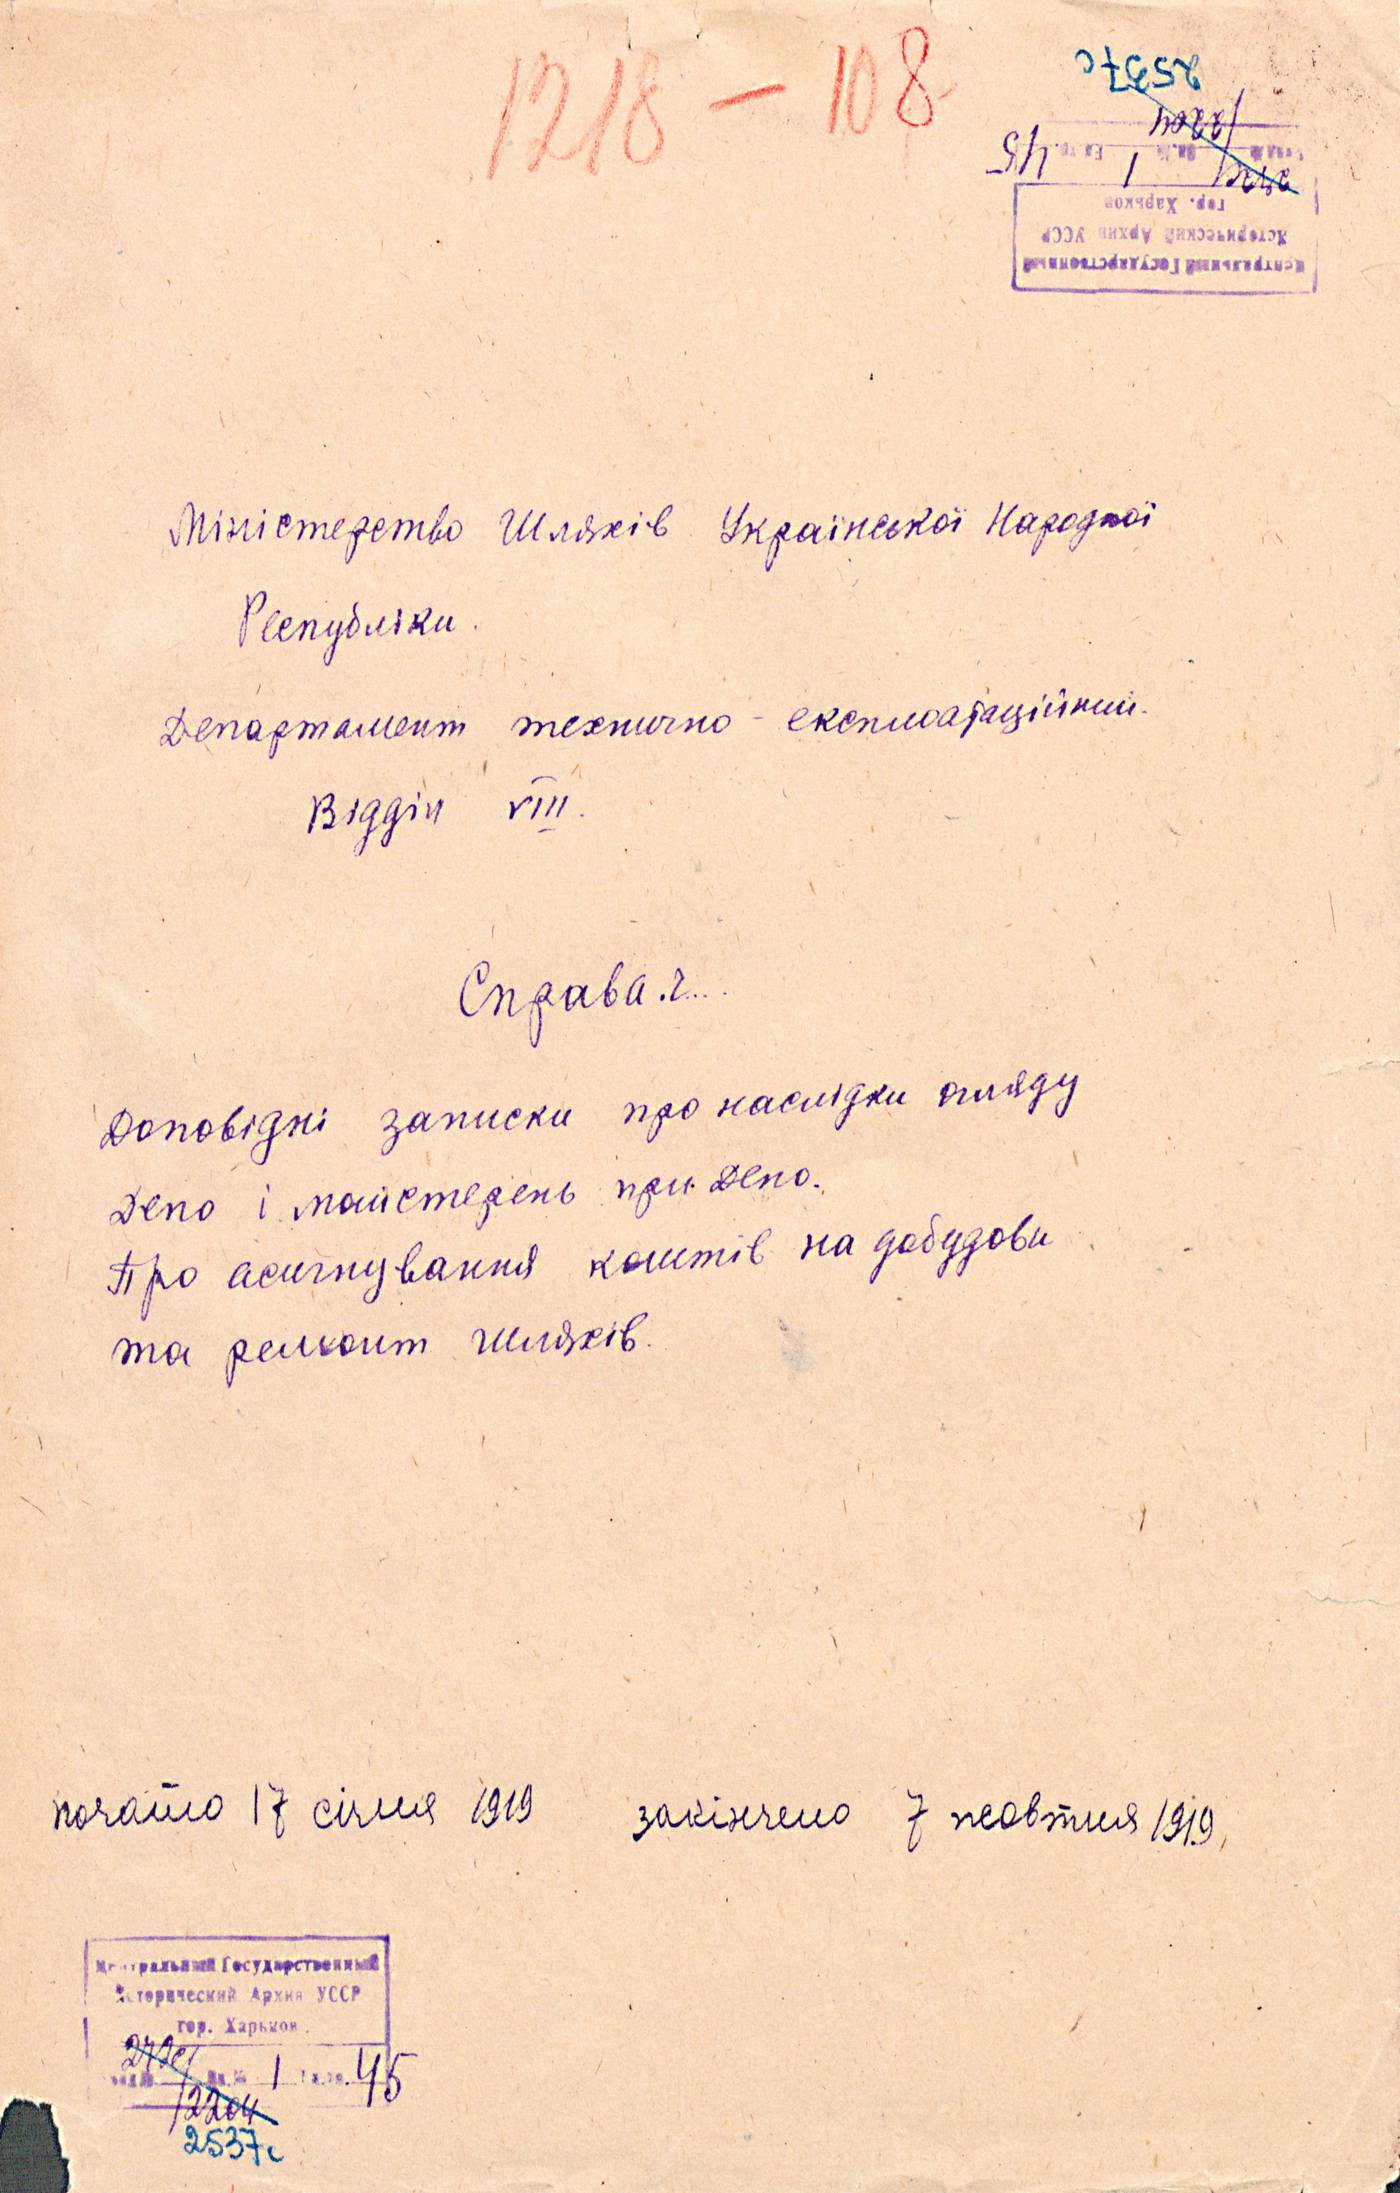 1218 - 108
2537с
12204
45
1
гор. Харьков
Исторический Архив УССР
Центральный Государственный
Міністерство Шляхів Української Народної
Республіки.
Департамент технично - експлоатаційний.
Відділ VIII.
Справа ч...
Доповідні записки про наслідки огляду
Депо і майстерень при Депо.
Про асигнування коштів на добудови
та ремонт шляхів.
почато 17 січня 1919 закінчено 7 жовтня 1919
Центральный Государственный
Исторический Архив УССР
гор. Харьков
Фонд № Оп. № 1 Ед. хр. 45
12204
2537с